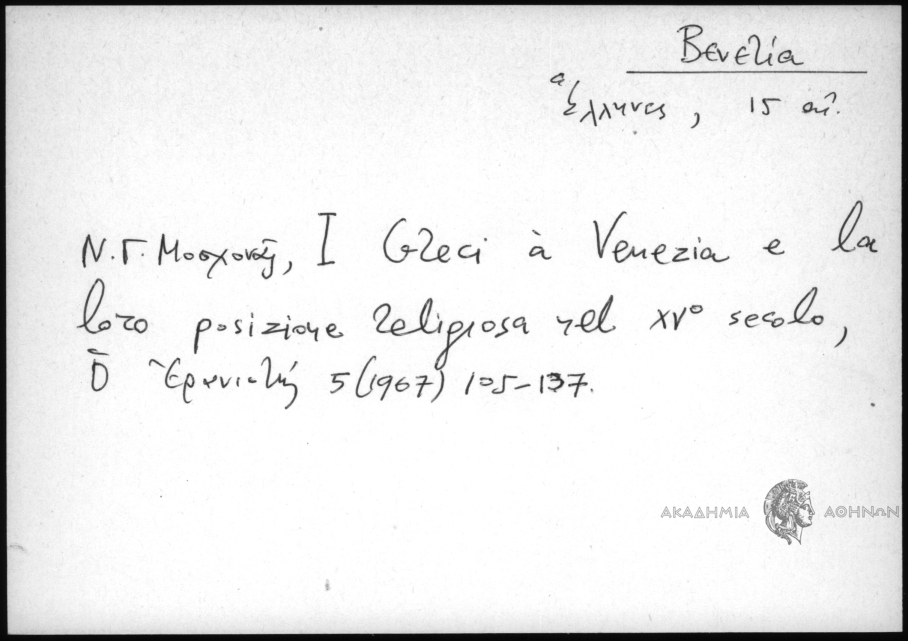 Βενετία
Ἕλληνες, 15 αἰ.
Ν. Γ. Μοσχονᾶς, I Greci à Venezia e la
loro posizione religiosa nel XV° secolo,
Ὁ Ἐρανιστής 5 (1967) 105-137.
ΑΚΑΔΗΜΙΑ ΑΘΗΝΩΝ